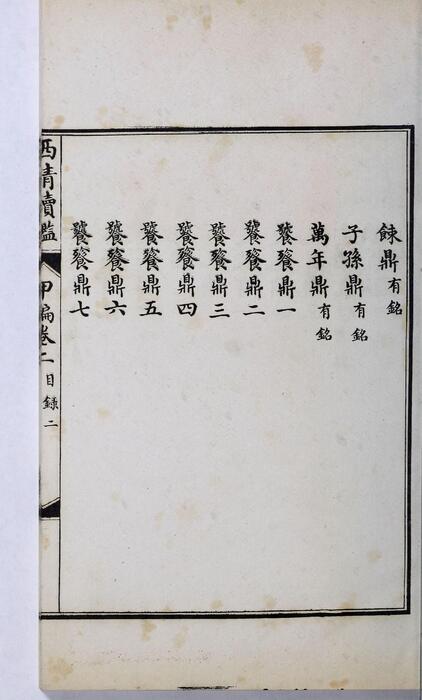 餗鼎有銘
子孫鼎有銘
萬年鼎有銘
饕餮鼎一
饕餮鼎二
饕餮鼎三
饕餮鼎四
饕餮鼎五
饕餮鼎六
饕餮鼎七
西清續鑑 甲編卷二 目錄 二